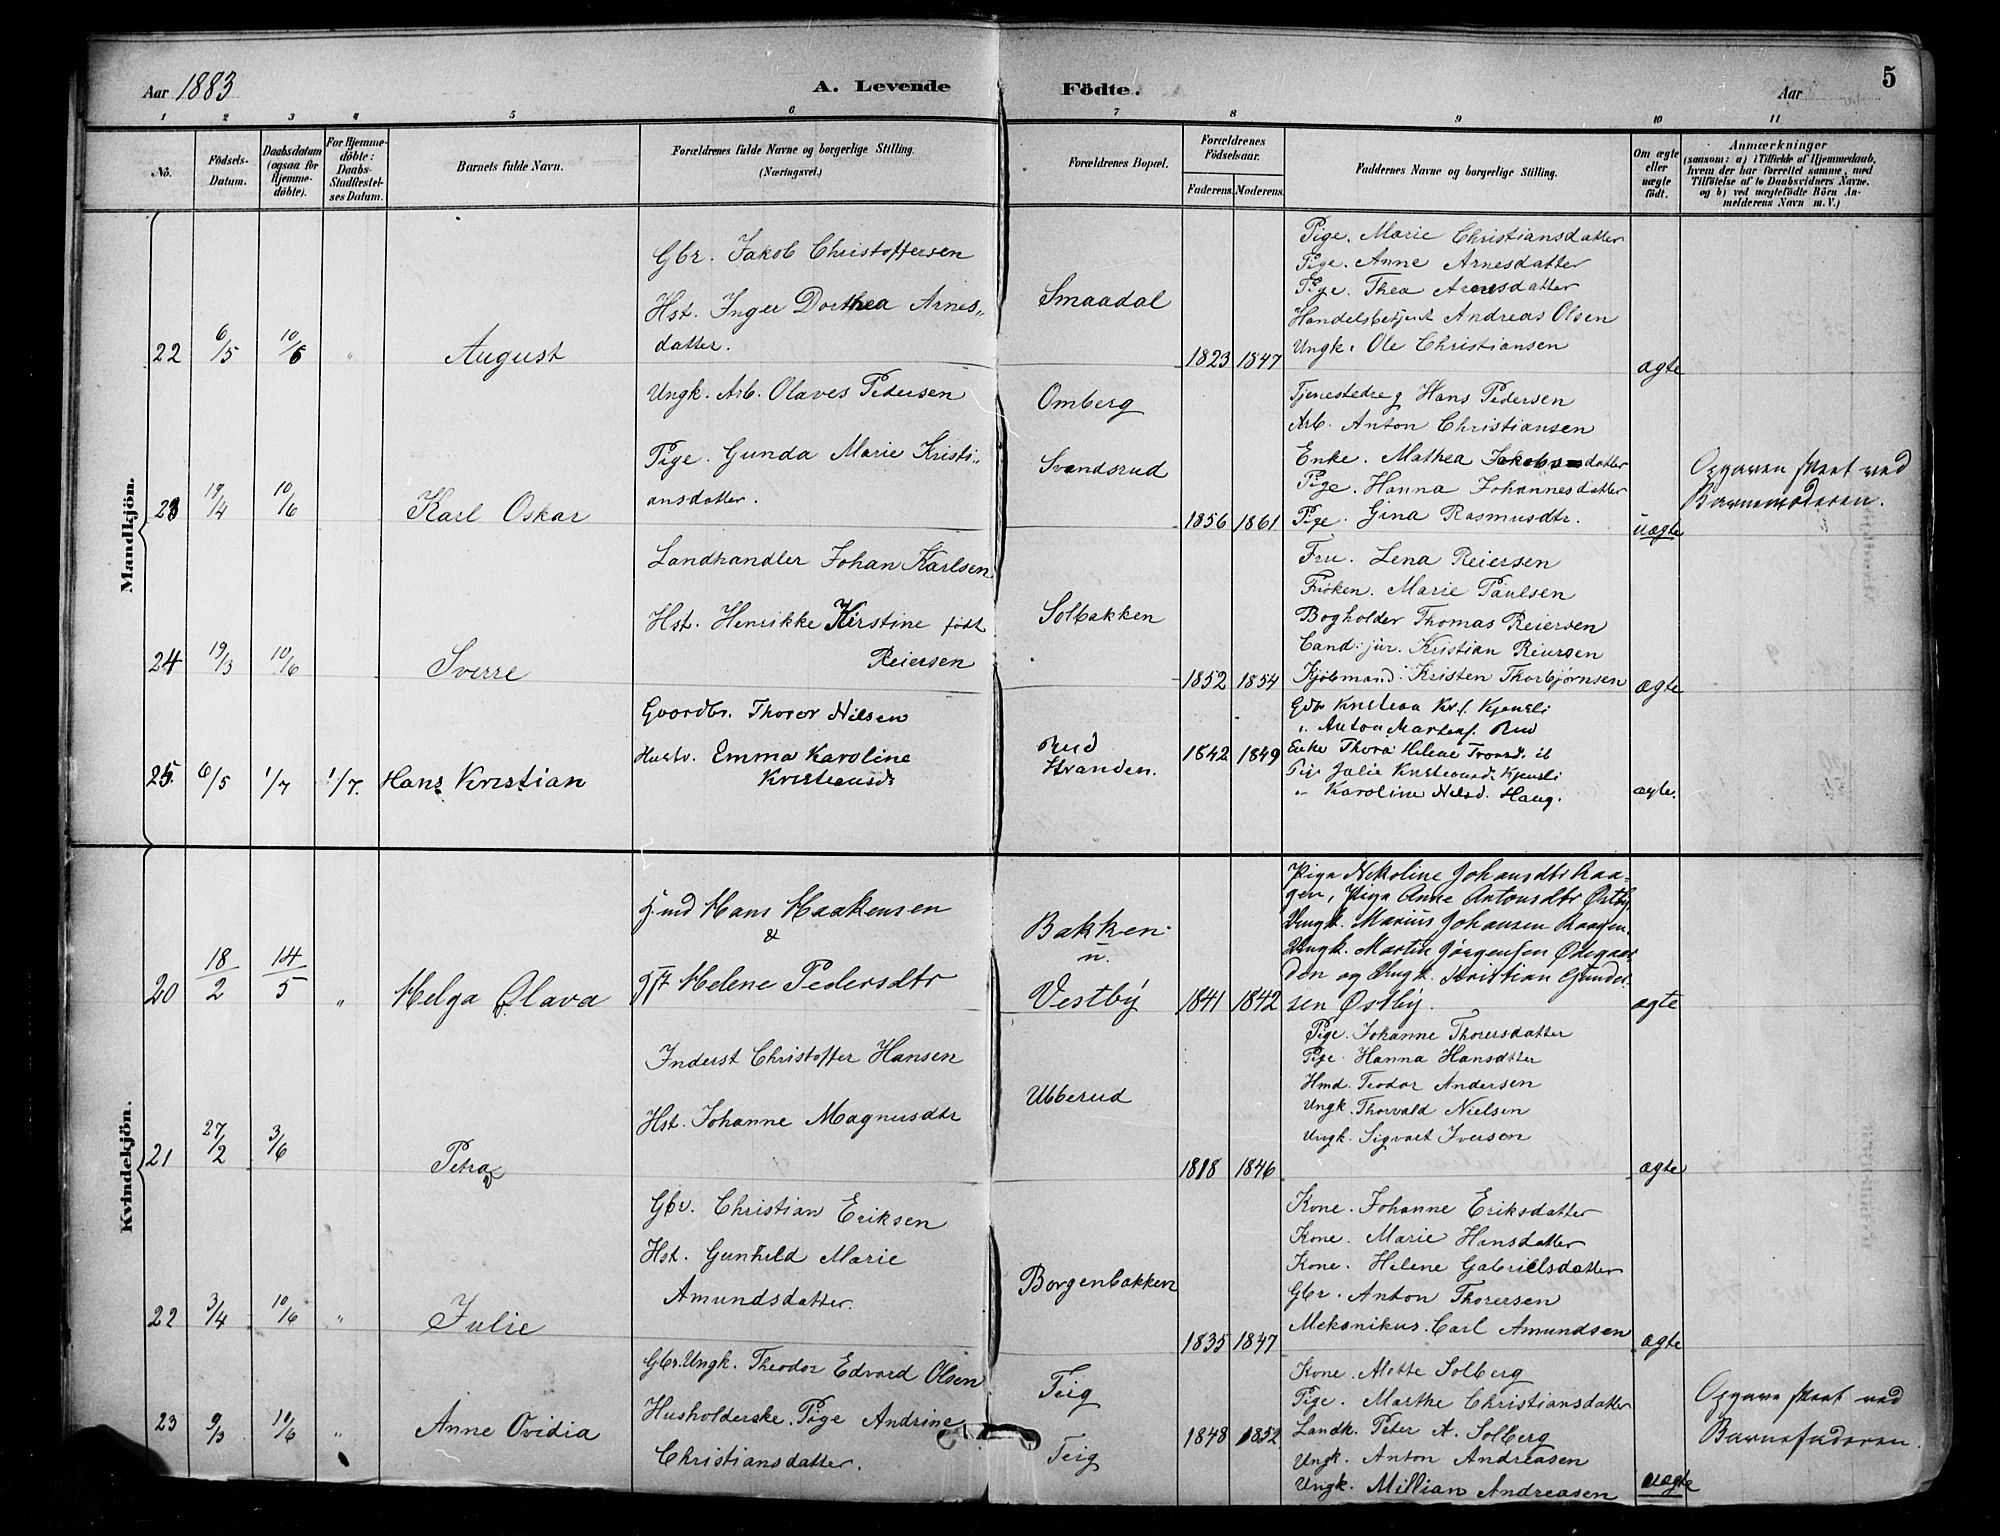 Aar 1883
A. Levende
Födte.
Aar
5
1 2 3 4 5 6 7 8 9 10 11
No.
Födsels-
Datum.
Daabsdatum
(ogsaa for
Hjemme-
döbte).
For Hjemme-
döbte:
Daabs-
Stadfæstel-
ses Datum.
Barnets fulde Navn.
Forældrenes fulde Navne og borgerlige Stilling.
(Næringsvei.)
Forældrenes Bopæl.
Forældrenes
Födselsaar.
Faderens.
Moderens.
Faddernes Navne og borgerlige Stilling.
Om ægte
eller
uægte
födt.
Anmærkninger
(saasom: a) i Tilfælde af Hjemmedaab,
hvem der har forrettet samme, med
Tilföielse af to Daabsvidners Navne.
og b) ved uægtefödte Börn An-
melderens Navn m. V.)
Mandkjön.
22
6/5
10/6
"
August
Gbr. Jakob Christoffersen
Hst. Inger Dorthea Arnes-
datter.
Smaadal
1823
1847
Pige. Marie Christiansdatter
Pige. Anne Arnesdatter
Pige. Thea Arnesdatter
Handelsbetjent Andreas Olsen
Ungk. Ole Christiansen
ægte
23
19/4
10/6
Karl Oskar
Ungk. Arb. Olaves Pedersen
Pige. Gunda Marie Kristi-
ansdatter.
Omberg
Svendsrud
1856
1861
Tjenestedreg Hans Pedersen
Arb. Anton Christiansen
Enke. Mathea Jakobsdatter
Pige. Hanna Johannesdatter
Pige. Gina Rasmusdtr.
uægte
Opgaven skeet ved
Barnemoderen.
24
19/3
10/6
Sverre
Landhandler Johan Karlsen
Hst. Henrikke Kirstine født
Reiersen
Solbakken
1852
1854
Fru. Lena Reiersen
Frøken. Marie Paulsen
Bogholder Thomas Reiersen
Cand: jur. Kristian Reiersen
Kjøbmand. Kristen Thorbjørnsen
ægte
25.
6/5
1/7
1/7.
Hans Kristian
Gaardbr. Thorer Nilsen
Hustr. Emma Karoline
Kristiansdr
Rud
Stranden.
1842
1849
Gdbr Kristian Kr.f. Kjensli
" Anton Martinsf. Rud
Enke Thora Helene
Pige Julie Kristiansd. Kjensli
" Karoline Nilsd. Haug.
ægte.
Kvindekjön.
20
18/2
14/5
"
Helga Olava
Hans Haakensen
&
Helene Pedersdtr
Bakken
u.
Vestby
1841
1842
Pige Nikoline Johansdtr Raa-
gen, Pige Anne Antonsdtr Østby,
Ungk. Marius Johansen Raagen.
Ungk. Martin Jørgensen Ødegaar-
den og Ungk. Kristian Gunder-
sen Østby.
ægte
21
27/2
3/6
Petra
Inderst Christoffer Hansen
Hst. Johanne Magnusdtr
Ubberud
1818
1846
Pige. Johanne Thorersdatter
Pige. Hanna Hansdatter
Hmd. Teodor Andersen
Ungk. Thorvald Nielsen
Ungk. Sigvart Iversen
ægte
22
3/4
10/6
"
Julie
Gbr. Christian Eriksen
Hst. Gunhild Marie
Amundsdatter.
Borgenbakken
1835
1847
Kone. Johanne Eriksdatter
Kone. Marie Hansdatter
Kone. Helene Gabrielsdatter
Gbr. Anton Thorersen
Mekanikus. Carl Amundsen
ægte
23
9/3
10/6
"
Anne Ovidia
Gbr. Ungk. Theodor Edvard Olsen
Husholderske. Pige Andrine
Christiansdatter.
Teig
Teig
1848
1852
Kone. Mette Solberg
Pige. Marthe Christiansdatter
Landh. Peter A. Solberg
Ungk. Anton Andreasen
Ungk. Millian Andreasen
uægte
Opgave skeet ved
Barnefaderen.